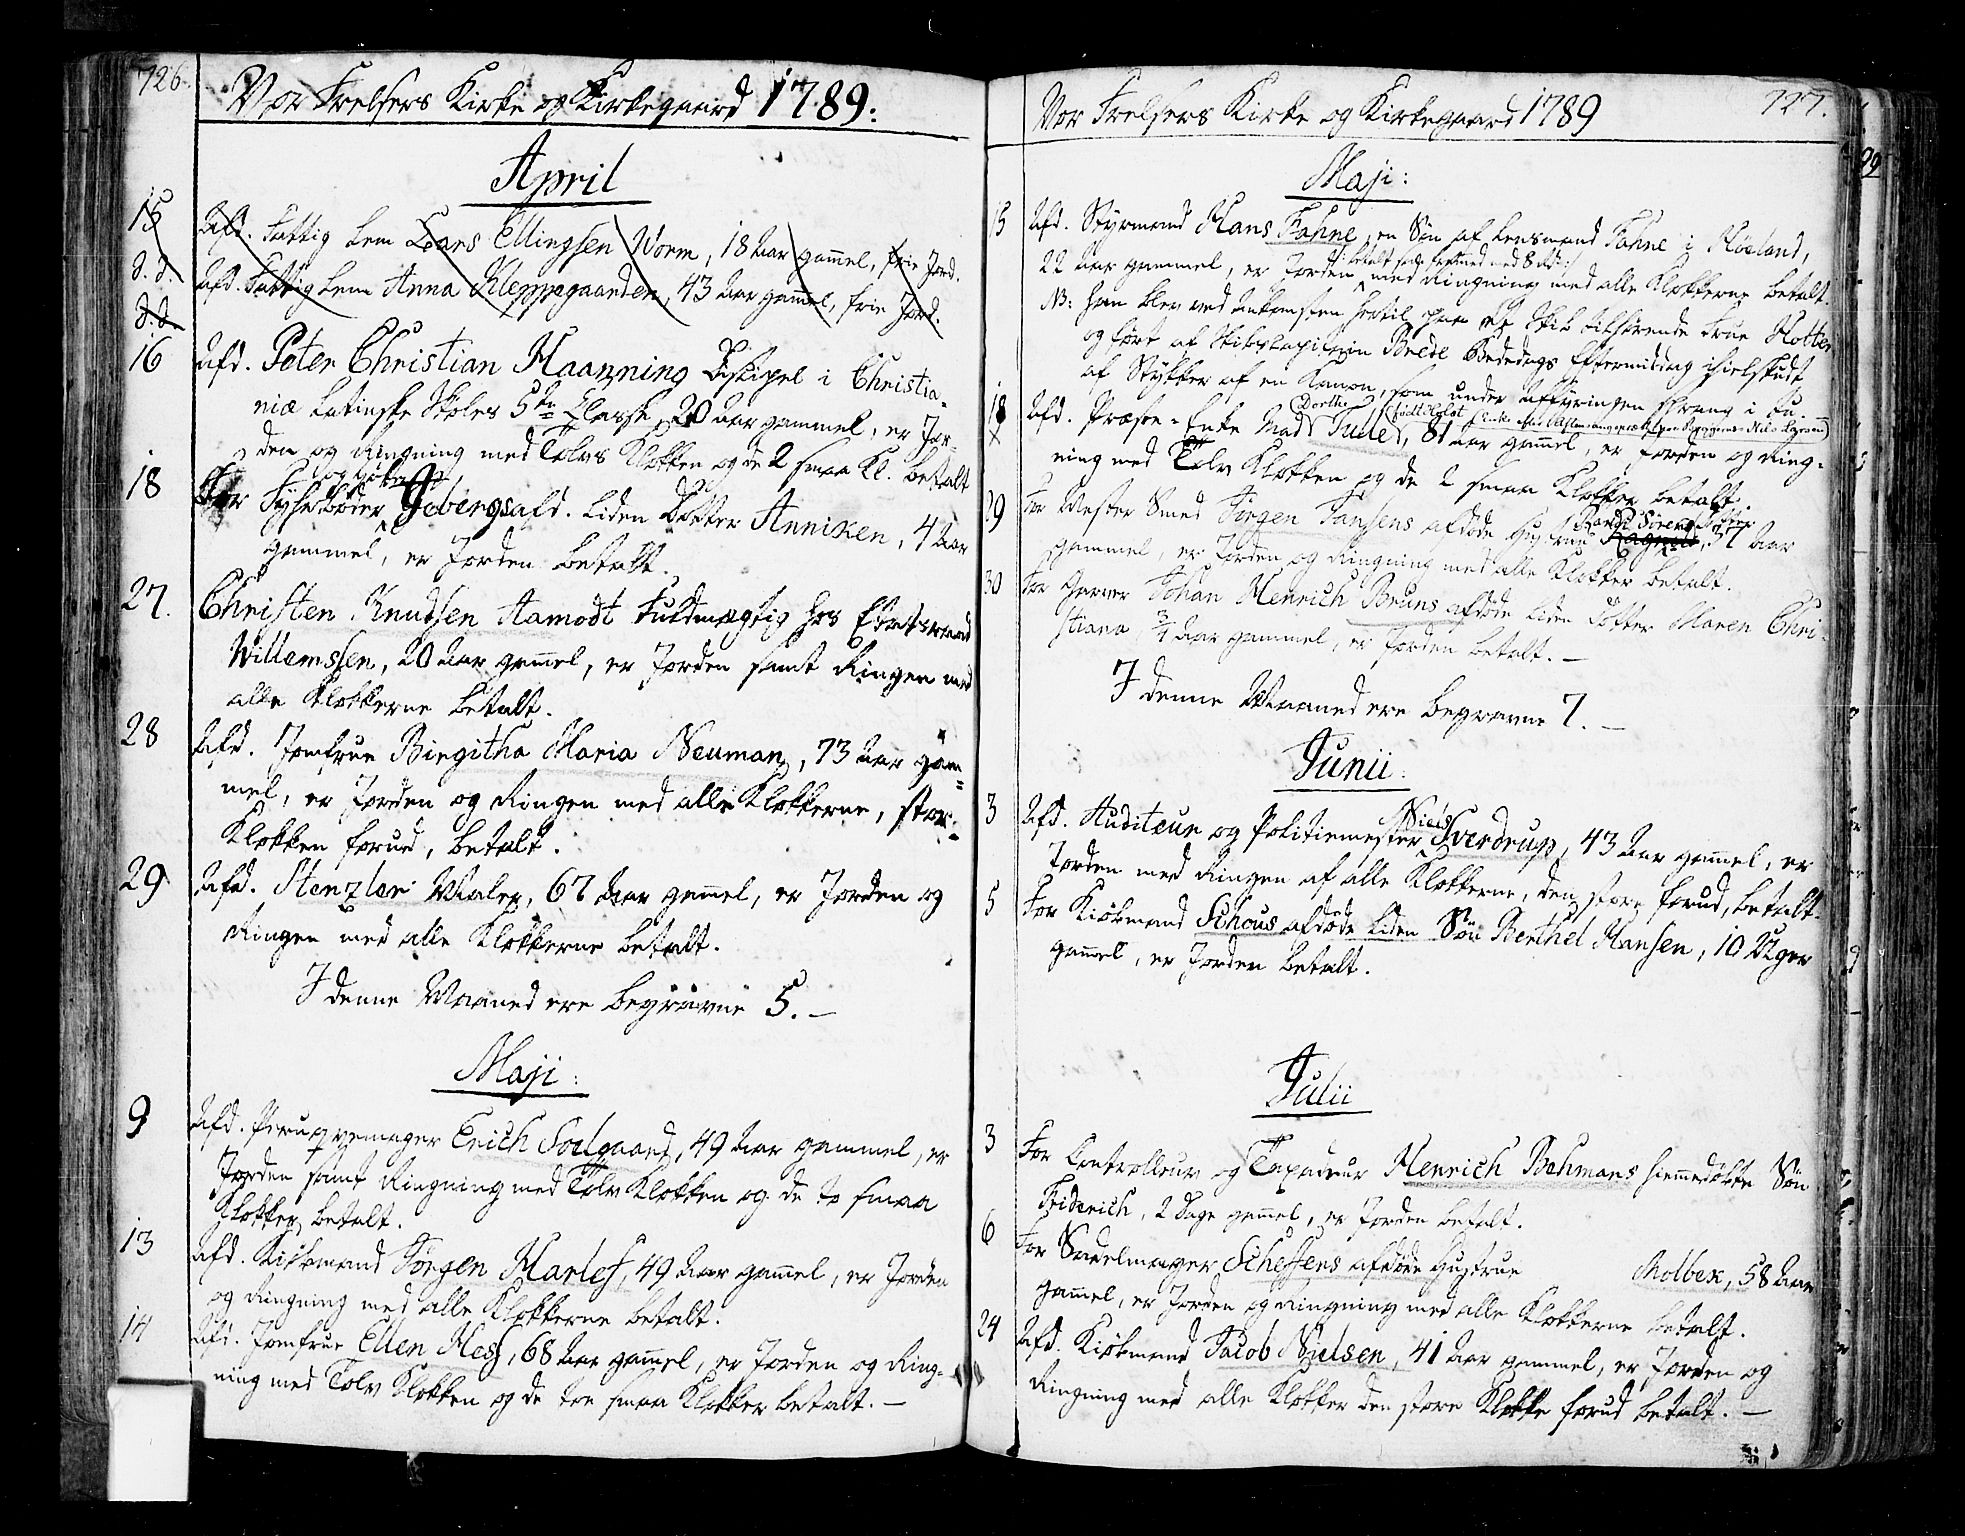 726.
Vor Frelsers Kirke og Kirkegaard 1789.
April
15 Afd. Fattig Lem Lars Ellingsen Worm, 18 Aar gammel, frie Jord.
d. d. Afd. Fattig Lem Anna Kleppegaarden, 43 Aar gam̄el, frie Jord.
d. d.
16 Afd. Peter Christian Haanning Discipel i Christia-
niæ Latinske Skoles 5te Classe, 20 Aar gammel, er Jor-
den og Ringning med Tolv Klokken og de 2 smaa Kl. betalt
18 For Gebergs afd. Liden Dotter Anniken, 4 Aar
gammel, er Jorden betalt.
27. Christen Knudsen Aamodt Fuldmægtig hos Etatsraad
Willemssen, 20 Aar gam̄el, er Jorden samt Ringen med
alle Klokkerne betalt.
28 Afd. Jomfrue Birgitha Maria Neuman, 73 Aar gam-
mel, er Jorden og Ringen med alle Klokkerne, stor-
Klokken forud, betalt.
29 Afd. Stenzler Maler, 67 Aar gam̄el, er Jorden og
Ringen med alle Klokkerne betalt.
I denne Maaned ere begravne 5. —
Maji:
9 Afd. Peruqvemager Erich Soelgaard, 49 Aar gammel, er
Jorden samt Ringning med Tolv Klokken og de to smaa
Klokker betalt.
13 Afd. Kiøbmand Jørgen Harless, 49 Aar gam̄el, er Jorden
og Ringning med alle Klokkerne betalt.
14 Afd. Jomfrue Ellen Hess, 68 Aar gam̄el, er Jorden og Ring-
ning med Tolv Klokken og de toe smaa Klokker betalt. —
727.
Vor Frelsers Kirke og Kirkegaard 1789
Maji:
15 Afd. Styrmand Hans Fahne, en Søn af Lensmand Fahne i Høeland,
22 Aar gammel, er Jorden med Ringning med alle Klokkerne betalt.
NB: han blev ved Ankomsten hertil paa et Skib tilhørende Frue Hotter
og ført af Skibskapitain Brede Bededags Eftermiddag ihielskudt
af Stykker af en Kanon, som under Affyringen sprang i
18 Afd. Præste-Enke Mad Dorthe Tulle, 81 Aar gam̄el, er Jorden og Ring-
ning med Tolv Klokken og de 2 smaa Klokker betalt.
29 For Mester Smed Jørgen Jansens afdøde Hustrue 37 Aar
gammel, er Jorden og Ringning med alle Klokker betalt.
30 For Garver Johan Henrich Bruns afdøde liden Dotter Maren Chri-
stiana, 3/4 Aar gammel, er Jorden betalt. —
I denne Maaned ere begravne 7. —
Junii:
3 Afd. Auditeur og Politiemester Niels Sverdrup, 43 Aar gam̄el, er
Jorden med Ringen af alle Klokkerne, den store forud, betalt.
5 For Kiøbmand Schous afdøde Liden Søn Berthel Hansen, 10 Uger
gam̄el, er Jorden betalt.
Julii
3 For Controlleur og Taxadeur Henrich Bahmans hiemmedøbte Søn
Friderich, 2 Dage gam̄el, er Jorden betalt.
6 For Sadelmager Scheffens afdøde Hustrue Molbek, 58 Aar
gam̄el, er Jorden og Ringning med alle Klokkerne betalt.
24 Afd. Kiøbmand Jacob Nielsen, 41 Aar gammel, er Jorden og
Ringning med alle Klokker den store Klokke forud betalt. —